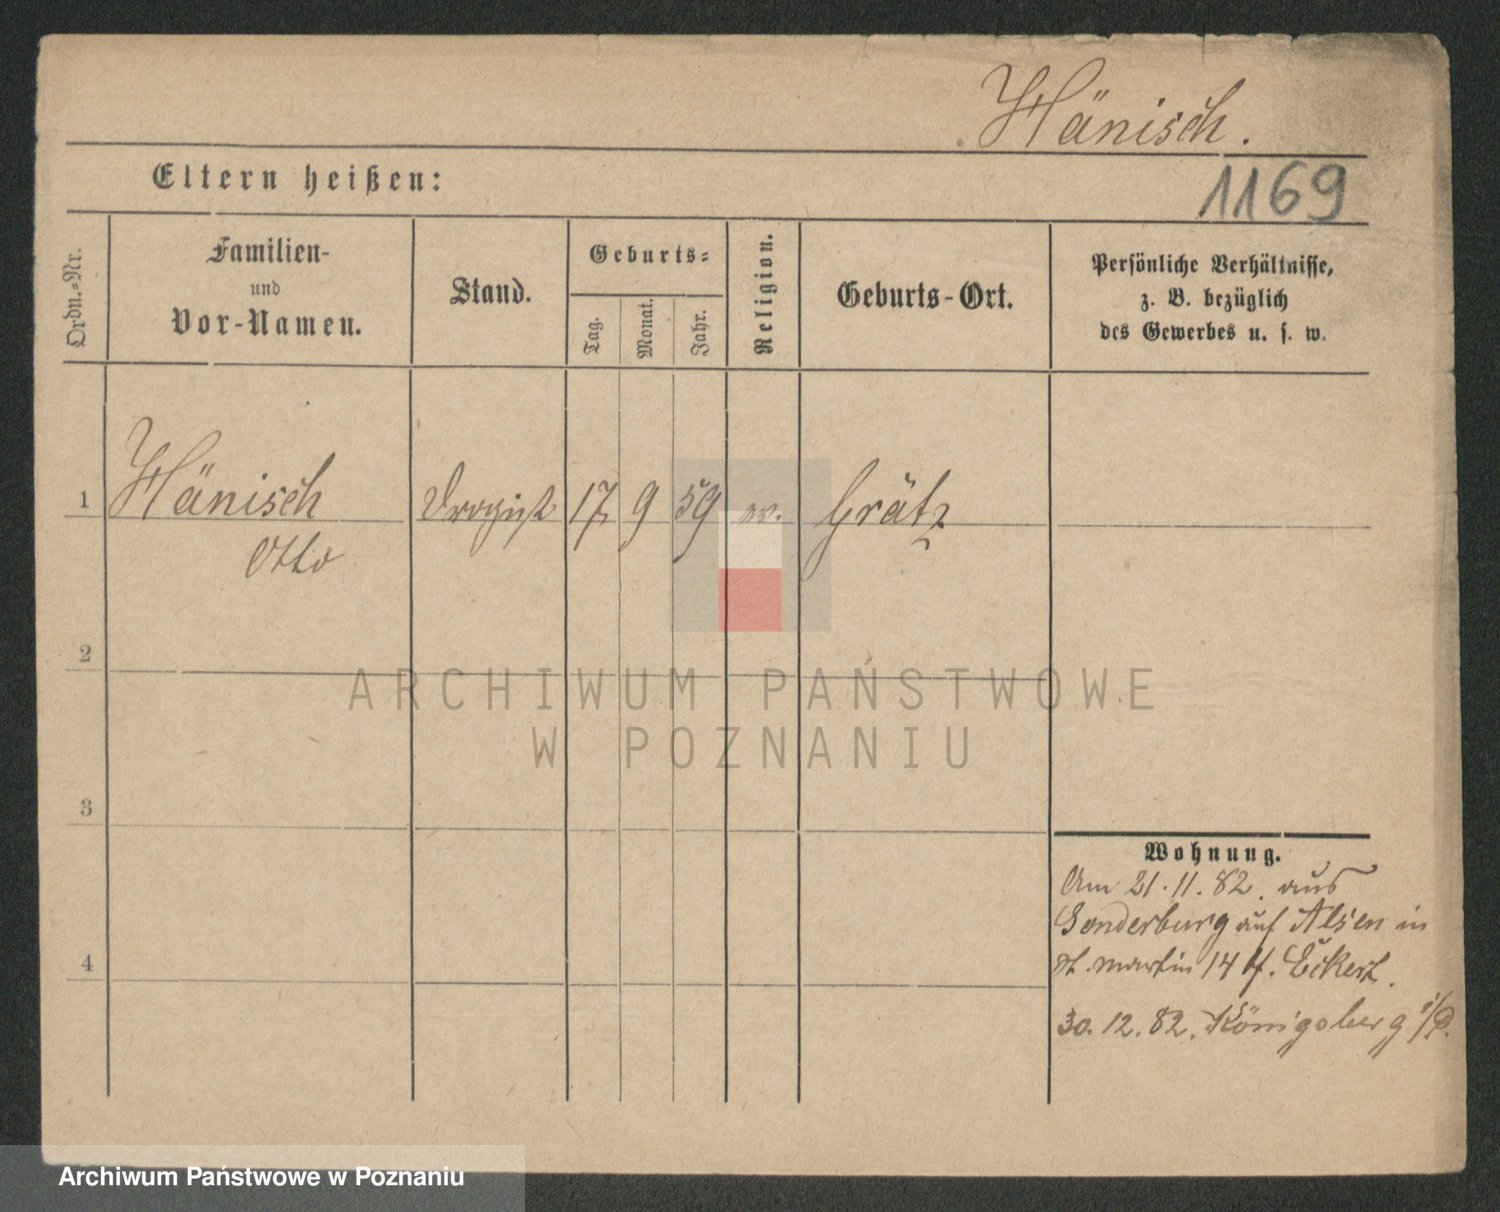 Hänisch.
1169
Eltern heißen:
Ordn.-Nr.
Familien-
und
Vor-Namen.
Stand.
Geburts-
Tag.
Monat.
Jahr.
Religion.
Geburts-Ort.
Persönliche Verhältnisse,
z. B. bezüglich
des Gewerbes u. s. w.
1
Hänisch
Otto
Drogist
17
9
59
ev.
Grätz
2
ARCHIWUM PAŃSTWOWE
W POZNANIU
3
4
Wohnung.
Am 21.11.82. aus
Sonderburg auf Alsen in
St. Martin 14 b. Eckert.
30.12.82. Königsberg i/P.
Archiwum Państwowe w Poznaniu